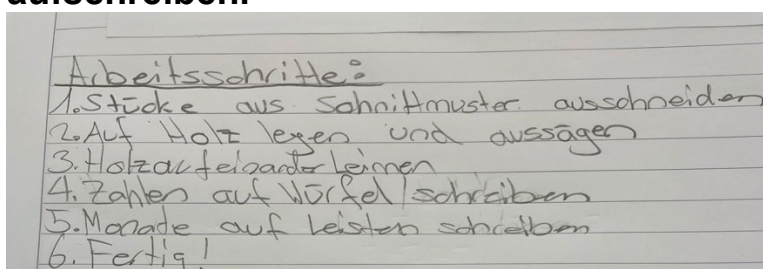 aufschreiben.
Arbeitsschritte:
1. Stücke aus Schnittmuster ausschneiden
2. Auf Holz legen und aussägen
3. Holz aufeinander leimen
4. Zahlen auf Würfel schreiben
5. Monade auf Leisten schreiben
6. Fertig!